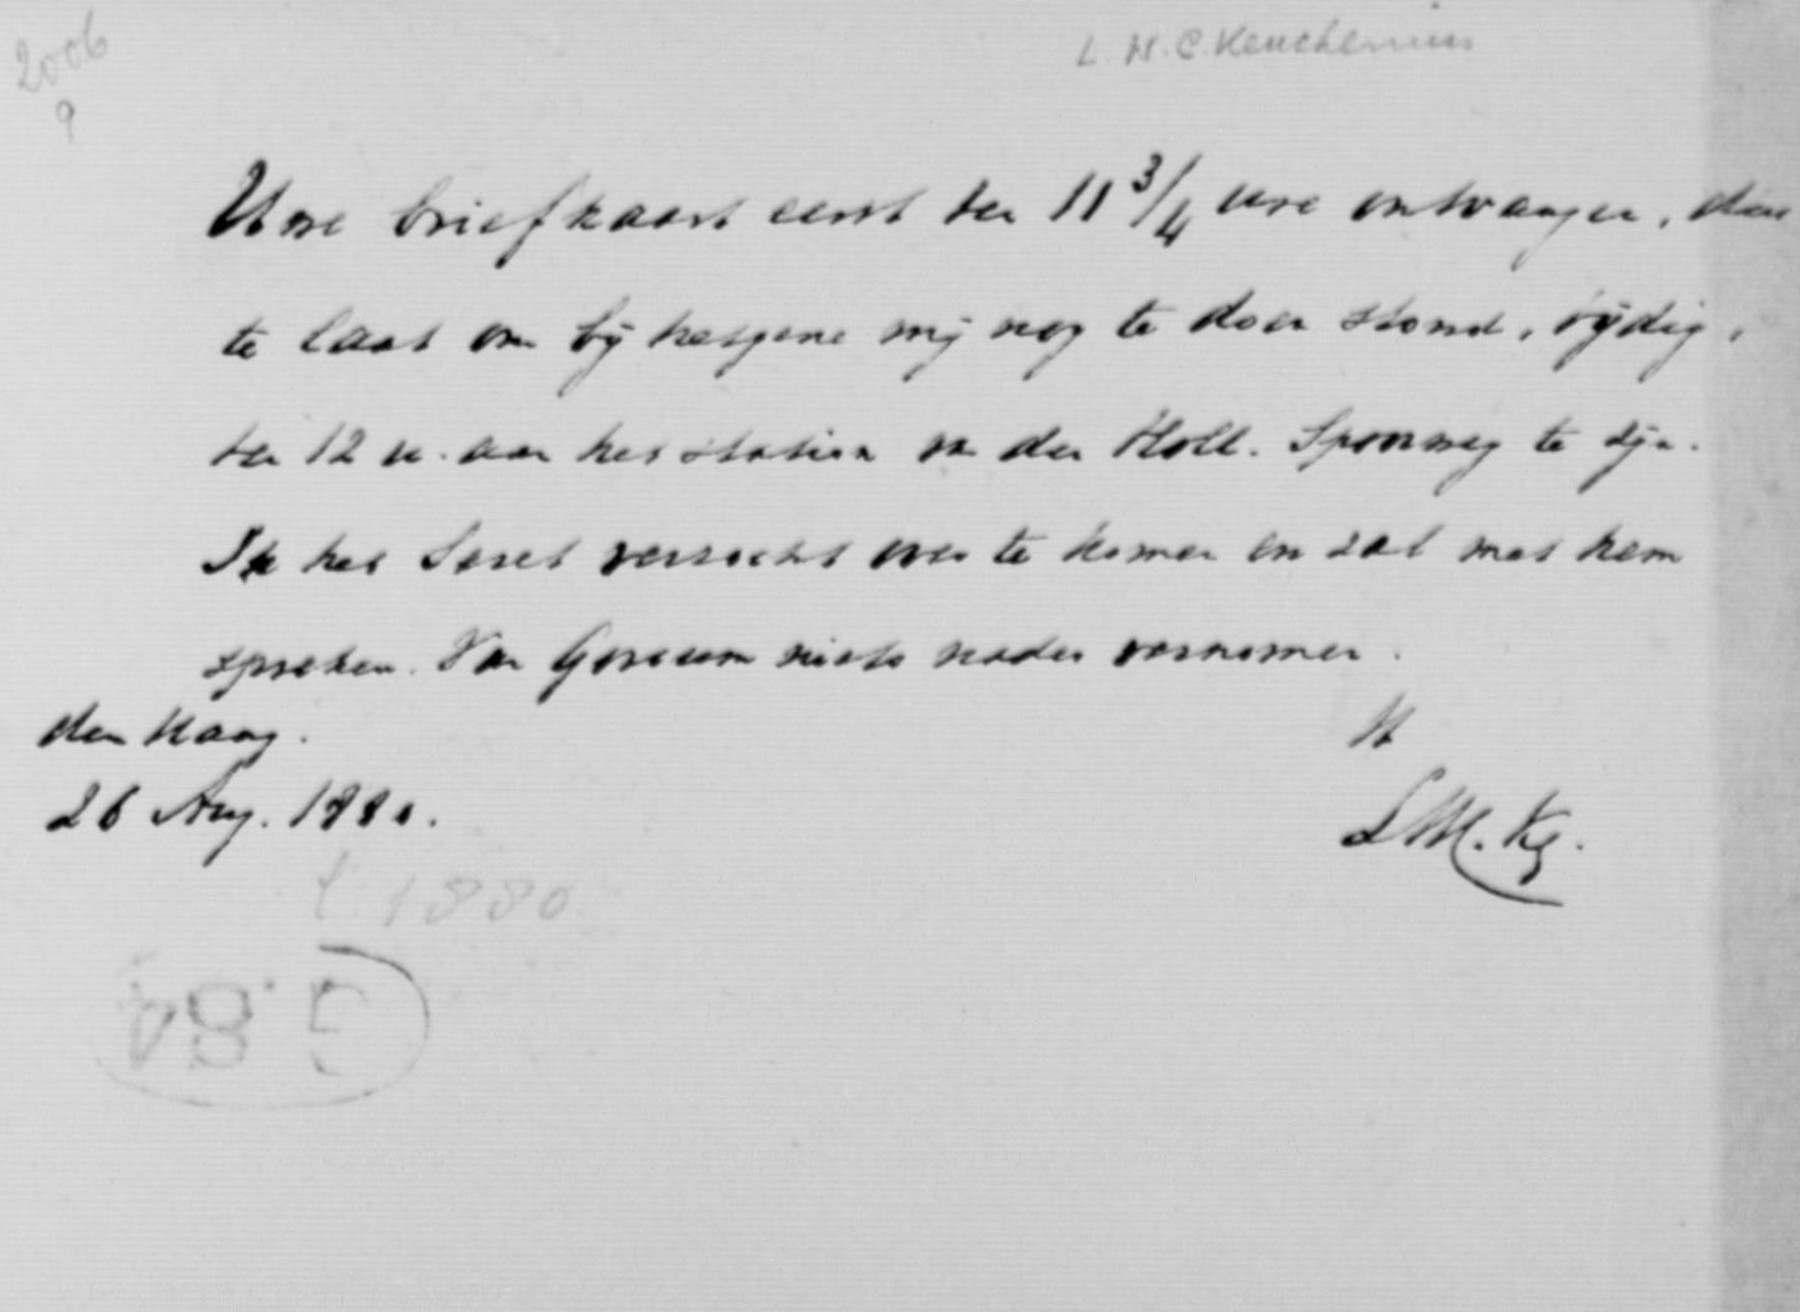 2006
9
L. W. C. Keuchenius
Uwe briefkaart eerst ten 11 3/4 ure ontvangen, dus
te laat om bij hetgene mij nog te doen stond, tijdig,
ten 12 u. aan het station van den Holl. Spoorweg te zijn.
Ik heb verzocht over te komen en zal met hem
spreken. Van Gorcum niets nader vernomen.
den Haag.
26 Aug. 1880.
1880